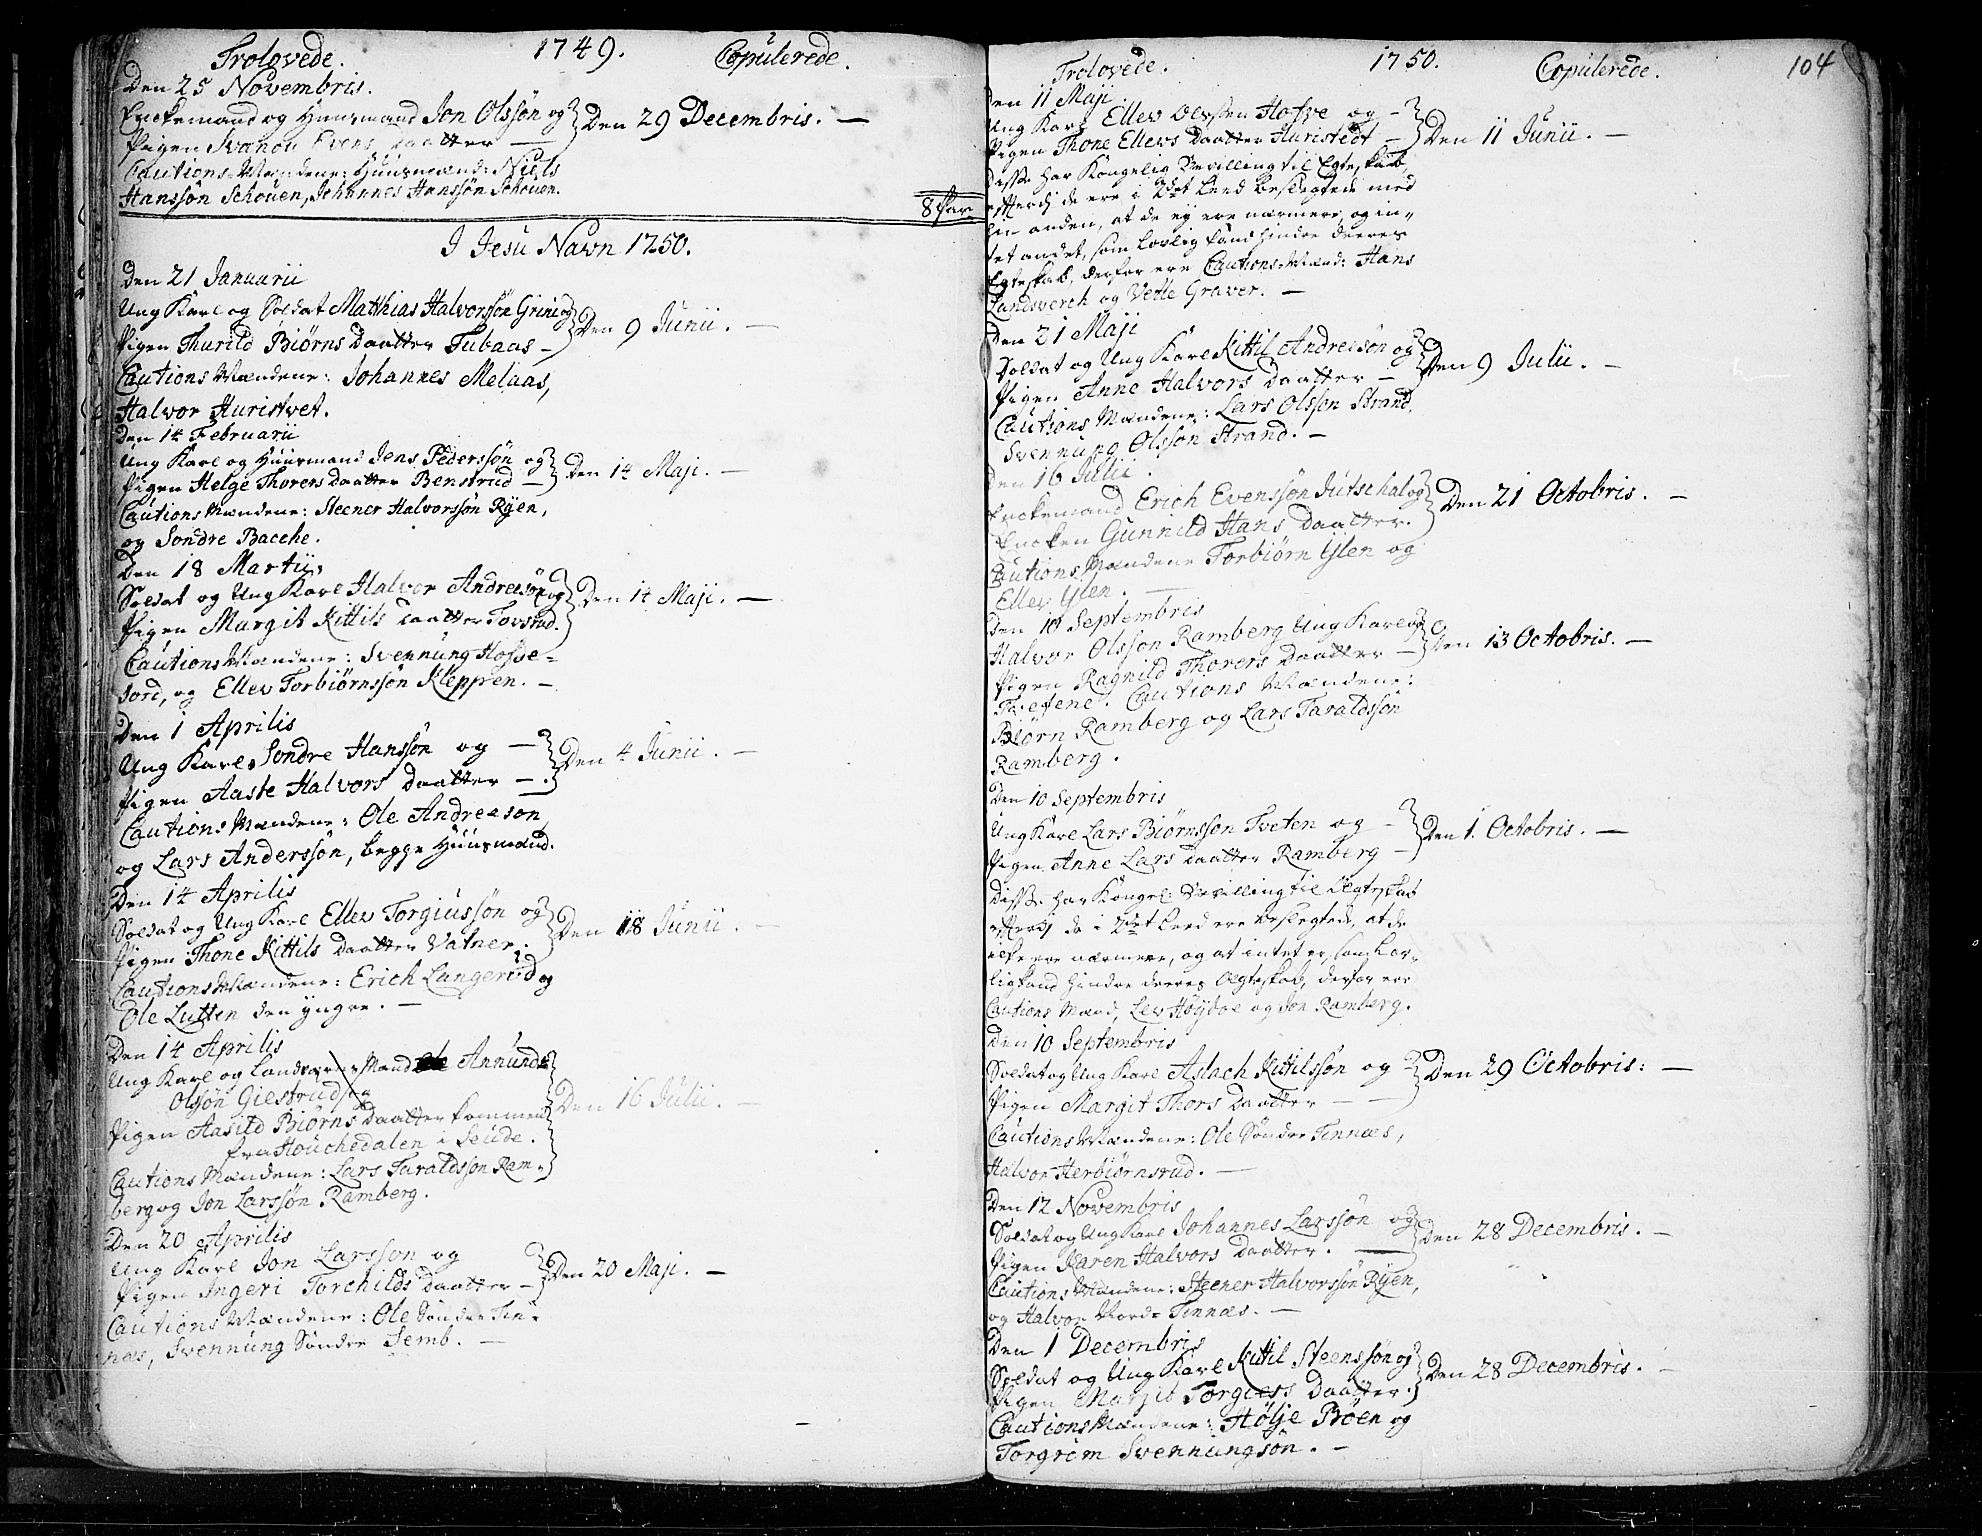 Trolovede. 1749. Copulerede.
Den 25 Novembris.
Enckemand og Huusmand Jon Olssön og
Pigen Svanou Evens daatter —
Den 29 Decembris. —
Cautions Mændene: Huusmænd: Niels
Hanssön Schouen, Johannes Hanssön Schouen.
8 Par
I Jesu Navn 1750.
Den 21 Januarii
Ung Karl og Soldat Matthias Halvorssön Grini og
Pigen Thurild Biörns daatter Tubaas —
Den 9 Junii. —
Cautions Mændene: Johannes Melaas,
Halvor Huristvet.
Den 14 Februarii
Ung Karl og Huusmand Jens Pederssön og
Pigen Helge Thorers daatter Benstrud —
Den 14 Maji. —
Cautions Mændene: Steener Halvorssön Ryen,
og Söndre Bacche.
Den 18 Martii
Soldat og Ung Karl Halvor Andreesön og
Pigen Margit Kittils daatter Tovsrud.
Den 14 Maji. —
Cautions Mændene: Svennung Hosse-
jord, og Ellev Torbiörnssön Kleppen. —
Den 1 Aprilis
Ung Karl Sondre Hanssön og —
Pigen Aaste Halvors daatter —
Den 4 Junii. —
Cautions Mændene: Ole Andreasön
og Lars Anderssön, begge Huusmænd.
Den 14 Aprilis
Soldat og Ung Karl Ellev Torgiussön og
Pigen Thone Kittils daatter Vatner.
Den 18 Junii. —
Cautions Mændene: Erich Langerud og
Ole Lutten den yngre. —
Den 14 Aprilis
Ung Karl og Landværns Mand Annund
Olsön Giestrud og
Pigen Aasild Biörns daatter kommen
fra Houchedalen i Seude.
Den 16 Julii. —
Cautions Mændene: Lars Taraldssön Ram-
berg og Jon Larssön Ramberg.
Den 20 Aprilis
Ung Karl Jon Larsson og
Pigen Ingeri Torchilds daatter —
Den 20 Maji. —
Cautions Mændene: Ole Sönder Tin-
næs, Svennung Söndre Semb. —
Trolovede. 1750. Copulerede. 104
Den 11 Maji
Ung Karl Ellev Hofve og —
Pigen Thone Ellevs daatter Huristedt —
Den 11 Junii. —
Disse har Kongelig Bevilling til Egteskab,
efterdj de ere i 2det Leed beslegtede med
hin anden, at de ey ere nærmere, og in-
tet andet, som lovlig kand hindre deeres
Egteskab, derfor ere Cautions Mænd: Hans
Landsverch og Vetle Graver. —
Den 21 Maji
Soldat og Ung Karl Kittil Andreesön og
Pigen Anne Halvors daatter —
Den 9 Julii. —
Cautions Mændene: Lars Olssen Strand,
Svennung Olssön Strand. —
Den 16 Julii.
Enckemand Erich Evenssön Jutschal og
Encken Gunnild Hans daatter.
Den 21 Octobris. —
Cautions Mændene Torbiörn Ylen og
Ellev Ylen. —
Den 10 Septembris
Halvor Olsson Ramberg Ung Karl og
Pigen Ragnild Thorers daatter —
Den 13 Octobris. —
Cautions Mændene:
Biörn Ramberg og Lars Taraldssön
Ramberg.
Den 10 Septembris
Ung Karl Lars Biörnssön Tveten og —
Pigen Anne Lars daatter Ramberg —
Den 1. Octobris. —
Disse har Kongel: Bevilling til Ægteskab
efterdj de i 2det Leed ere beslegtede, at de
icke ere nærmere, og at intet er, som lov-
lig kand hindre deeres Ægteskab, derfor ere
Cautions Mænd, Lev Höydoe og Jon Ramberg.
Den 10 Septembris
Soldat og Ung Karl Aslach Kittilssön og —
Pigen Margit Thors daatter — —
Den 29 Octobris: —
Cautions Mændene: Ole Söndre Tinnæs,
Halvor Herbiörnsrud. —
Den 12 Novembris
Soldat og Ung Karl Johannes Larssön og
Pigen Karen Halvors daatter. —
Den 28 Decembris. —
Cautions Mændene: Steener Halvorssön Ryen,
og Halvor Nordr Tinnæs. —
Den 1 Decembris
Soldat og Ung Karl Kittil Steenssön og
Pigen Margit Torgiers daatter.
Den 28 Decembris. —
Cautions Mændene: Hölje Böen og
Torgrim Svennungsön. —